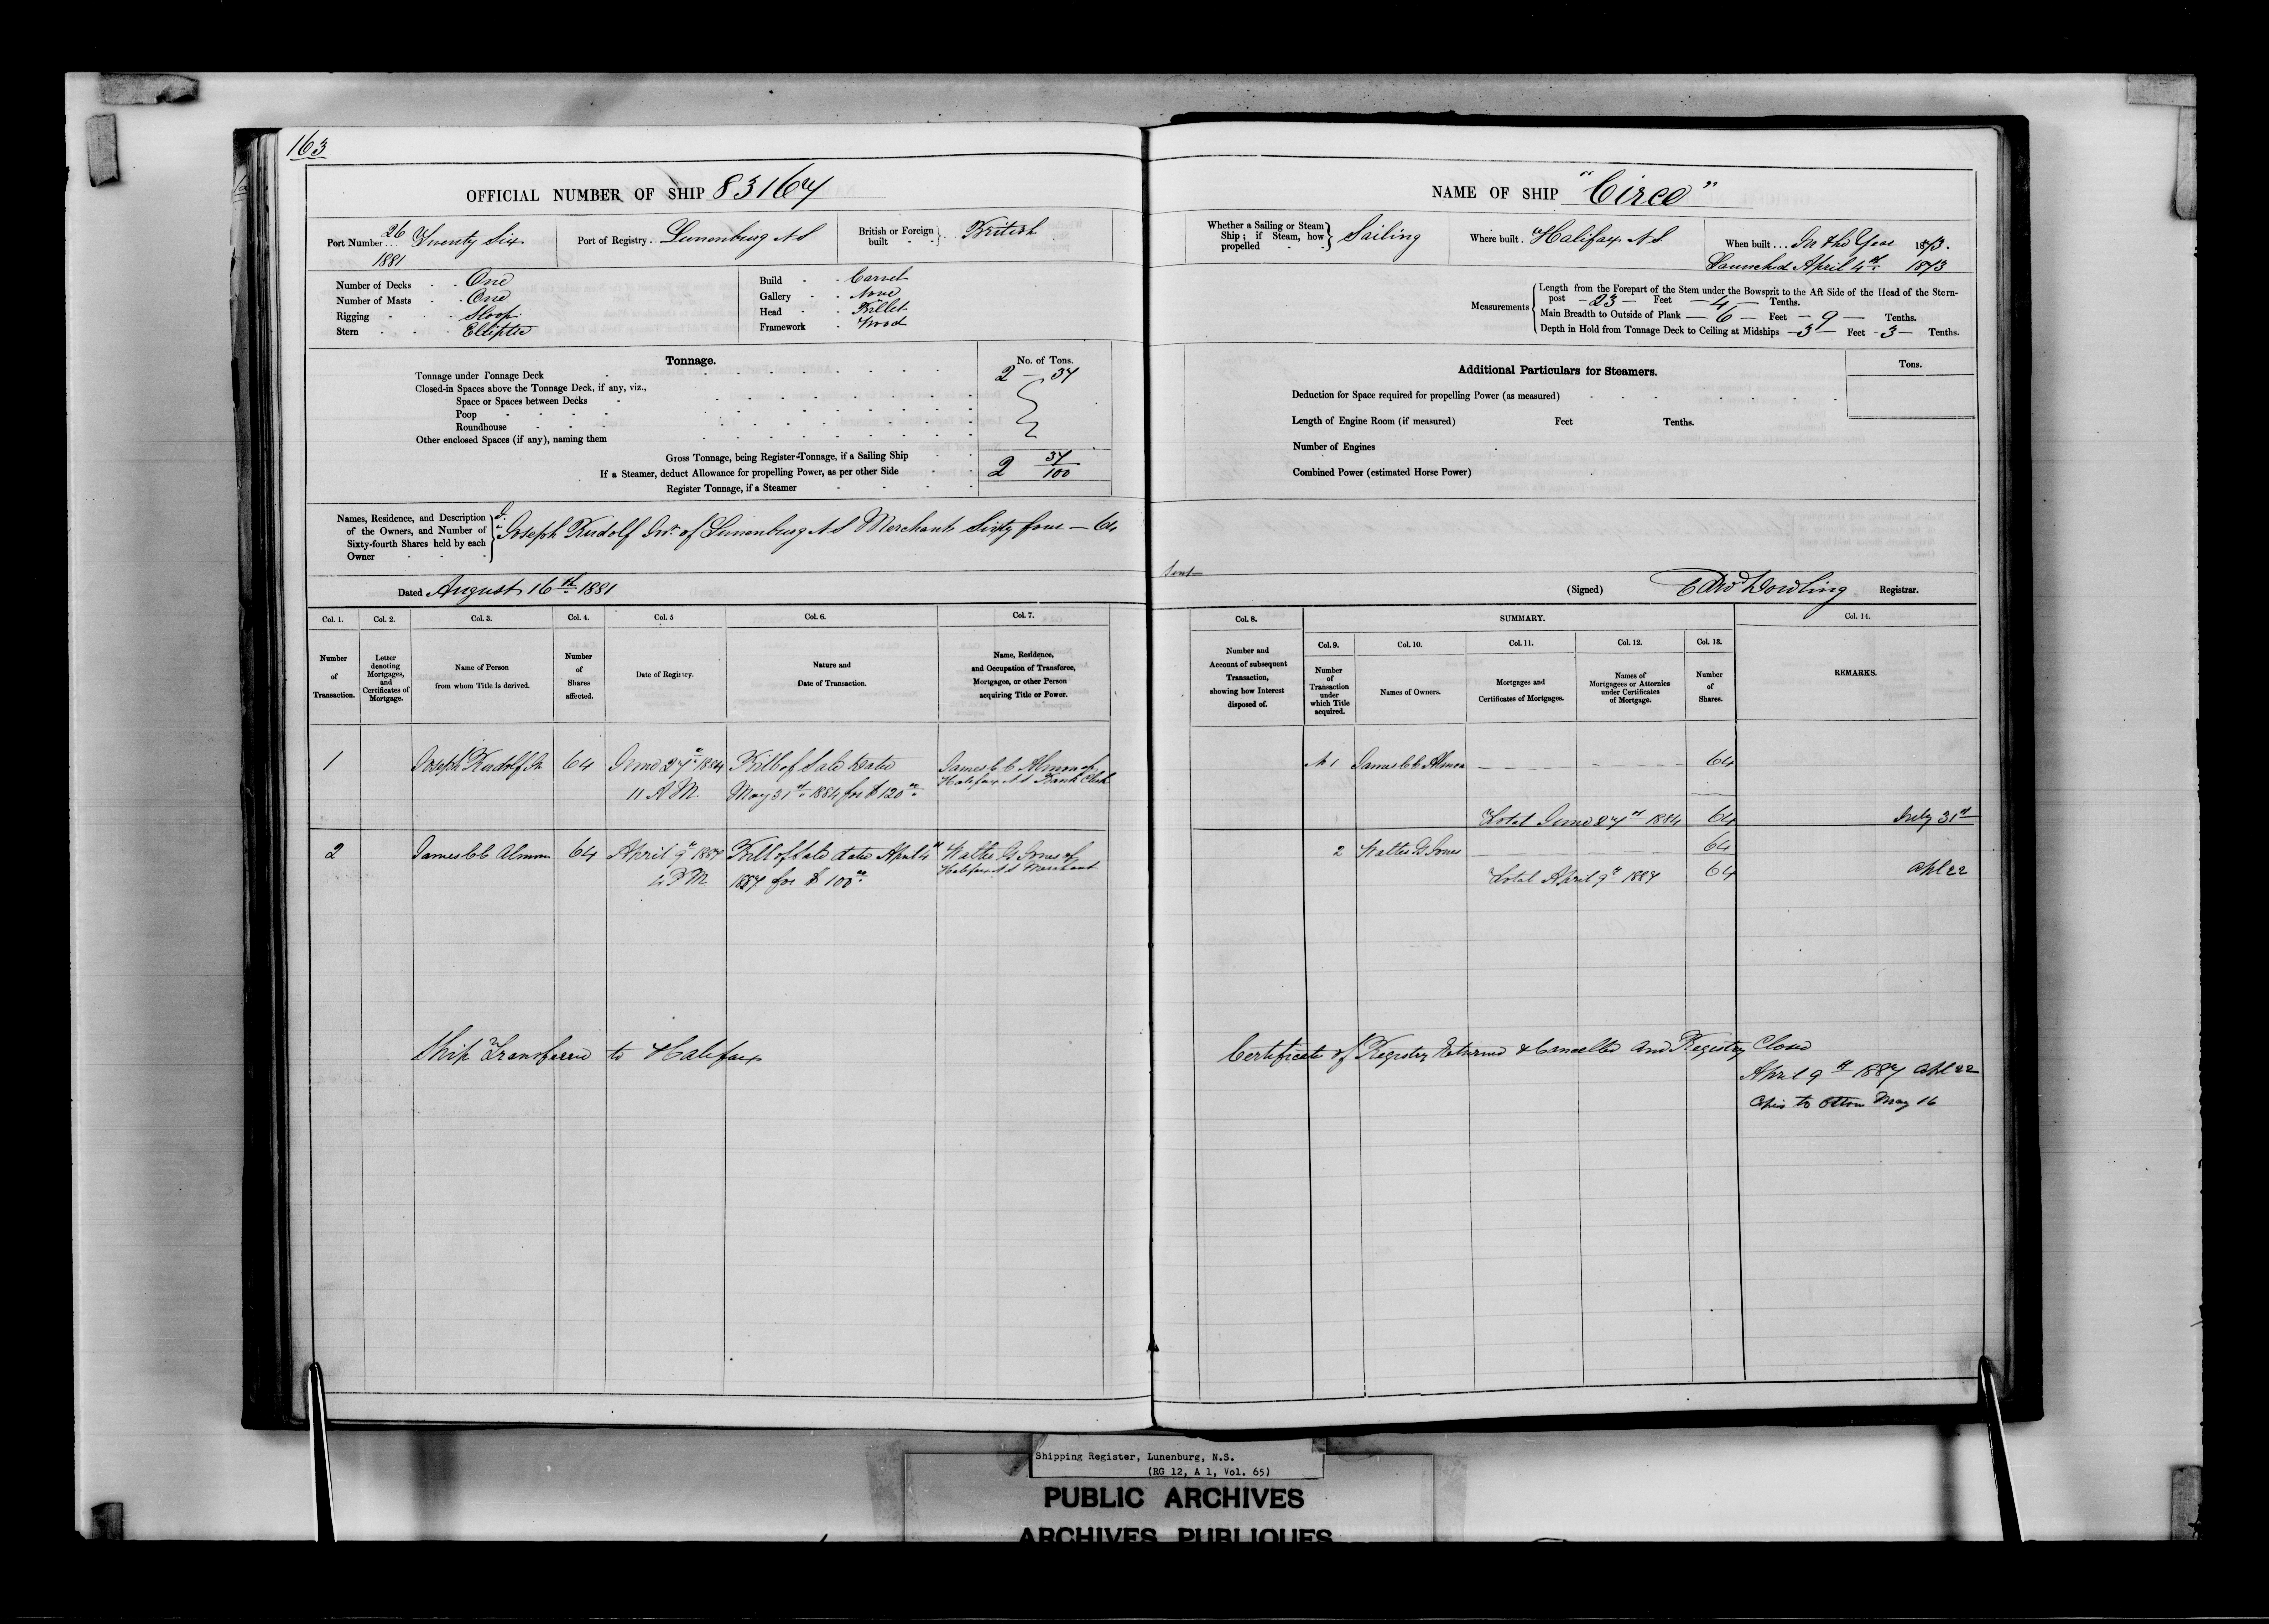 163
OFFICIAL NUMBER OF SHIP 83164
Port Number... 26 Twenty Six
1881
Port of Registry.. Lunenburg N S
British or Foreign built British
Number of Decks One
Number of Masts One
Rigging Sloop
Stern Elliptic
Build Carvel
Gallery None
Head Billet
Framework Wood
Tonnage.
No. of Tons.
Tonnage under Tonnage Deck 2 — 37
Closed-in Spaces above the Tonnage Deck, if any, viz.,
Space or Spaces between Decks
Poop
Roundhouse
Other enclosed Spaces (if any), naming them
Gross Tonnage, being Register-Tonnage, if a Sailing Ship
If a Steamer, deduct Allowance for propelling Power, as per other Side 2 37/100
Register Tonnage, if a Steamer
Names, Residence, and Description
of the Owners, and Number of
Sixty-fourth Shares held by each
Owner
Joseph Rudolf Jnr. of Lunenburg N S Merchant Sixty four — 64
Dated August 16th 1881
Col. 1.
Number
of
Transaction.
Col. 2.
Letter
denoting
Mortgages,
and
Certificates of
Mortgage.
Col. 3.
Name of Person
from whom Title is derived.
Col. 4.
Number
of
Shares
affected.
Col. 5
Date of Registry.
Col. 6.
Nature and
Date of Transaction.
Col. 7.
Name, Residence,
and Occupation of Transferee,
Mortgagee, or other Person
acquiring Title or Power.
1 Joseph Rudolf Jr 64 June 27th 1884 Bill of Sale dated James C C Almon of
Halifax N S Bank Clerk
11 A M. May 31st 1884 for $120
2 James C C Almon 64 April 9th 1887 Bill of Sale dated April 4th Walter G Jones of
Halifax N S Merchant
4 P M 1887 for $100
Ship Transferred to Halifax
NAME OF SHIP "Circe"
Whether a Sailing or Steam
Ship; if Steam, how
propelled
Sailing
Where built. Halifax N.S.
When built... In the Year 1873.
Launched April 4th 1873
Measurements
Length from the Forepart of the Stem under the Bowsprit to the Aft Side of the Head of the Stern-
post —23— Feet —4— Tenths.
Main Breadth to Outside of Plank —6— Feet —9— Tenths.
Depth in Hold from Tonnage Deck to Ceiling at Midships —3— Feet —3— Tenths.
Additional Particulars for Steamers.
Tons.
Deduction for Space required for propelling Power (as measured)
Length of Engine Room (if measured) Feet Tenths.
Number of Engines
Combined Power (estimated Horse Power)
Sent
(Signed) Edwd Dowling Registrar.
Col. 8.
Number and
Account of subsequent
Transaction,
showing how Interest
disposed of.
SUMMARY.
Col. 9.
Number
of
Transaction
under
which Title
acquired.
Col. 10.
Names of Owners.
Col. 11.
Mortgages and
Certificates of Mortgages.
Col. 12.
Names of
Mortgagees or Attornies
under Certificates
of Mortgage.
Col. 13.
Number
of
Shares.
Col. 14.
REMARKS.
1 James C C Almon 64
Total June 27th 1884 64 July 31st
2 Walter G Jones 64
Total April 9th 1887 64 Apl 22
Certificate of Registry Returned & Cancelled and Registry Closed
April 9th 1887 Apl 22
to Ottawa May 16
Shipping Register, Lunenburg, N.S.
(RG 12, A 1, Vol. 65)
PUBLIC ARCHIVES
ARCHIVES PUBLIQUES